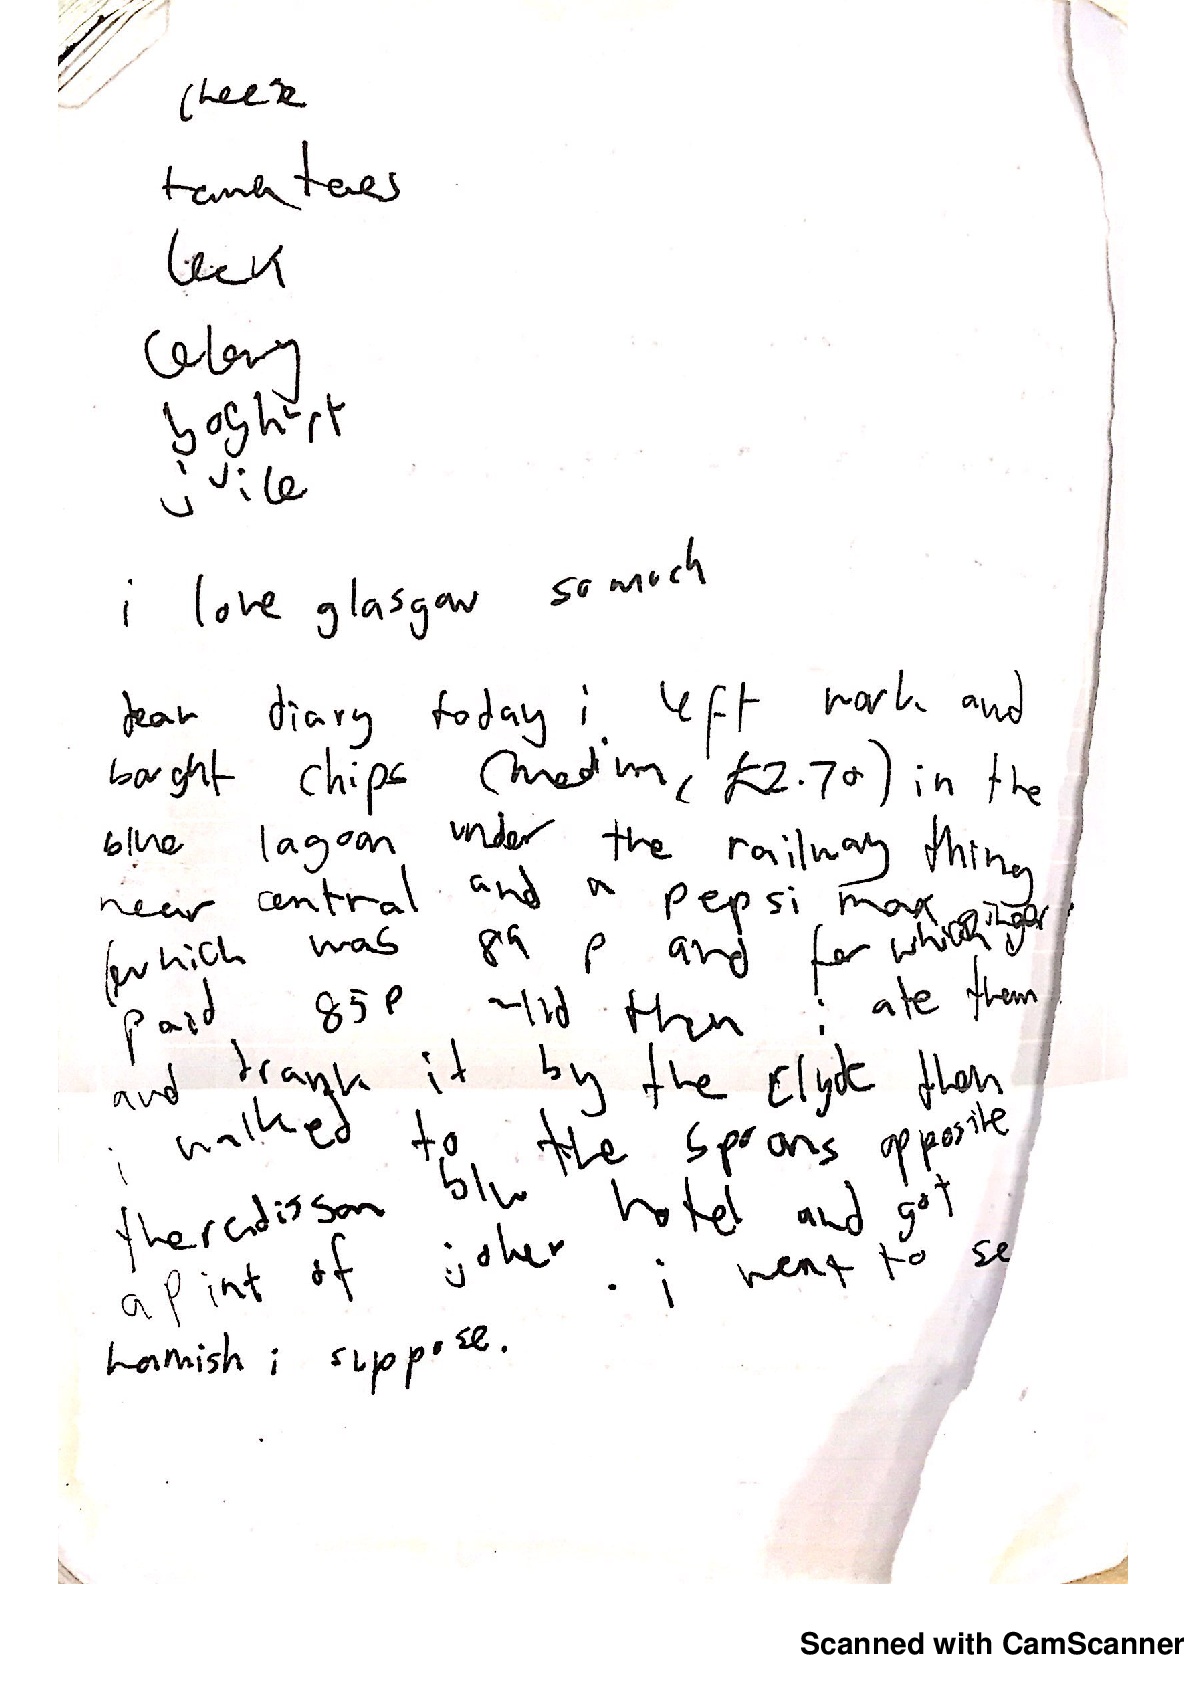 cheese
tomatoes
leek
Celery
yoghurt
juice
i love glasgow so much
dear diary today i left work and
bought chips (medium, £2.70) in the
blue lagoon under the railway thing
near central and a pepsi max ginger
(which was 89 p and for which i
paid 85p then i ate them
and drank it by the clyde then
i walked to the spoons opposite
the radisson blu hotel and got
a pint of joker. i went to se
hamish i suppose.
Scanned with CamScanner